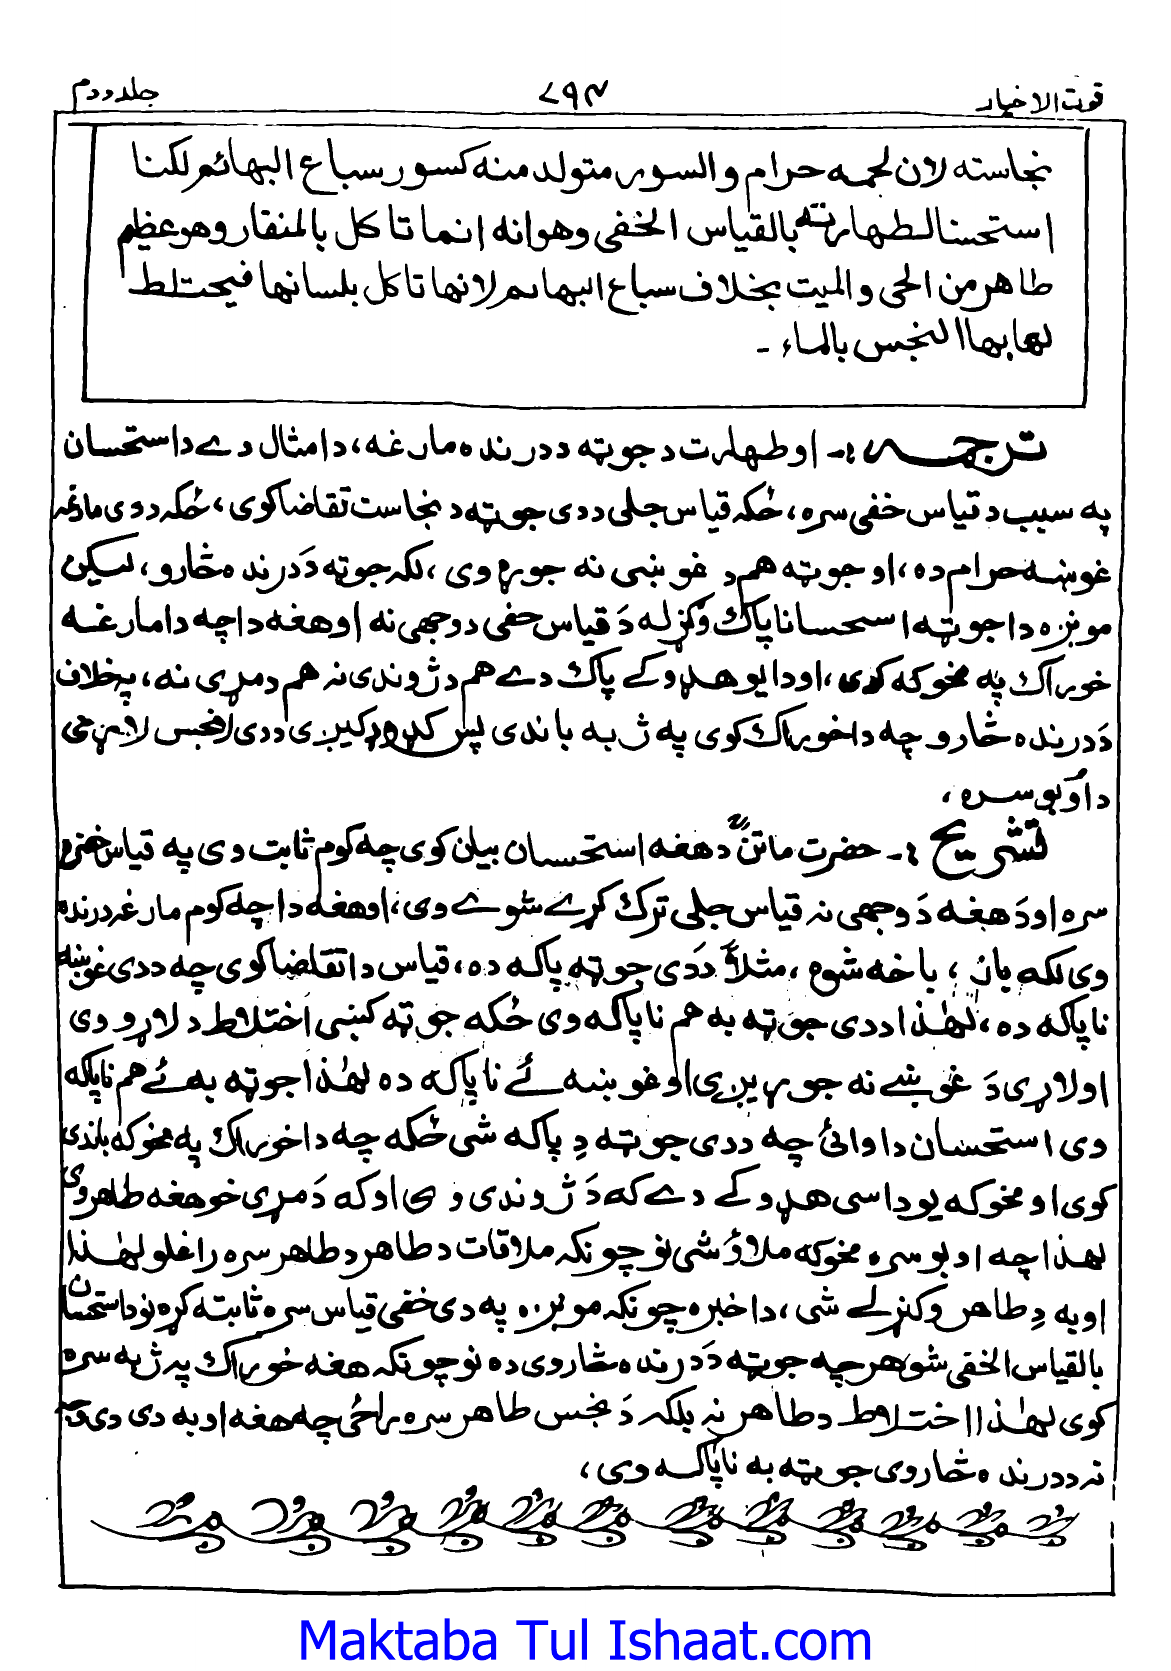 قوت الاخيار ٧٩٣ جلد دوم
نجاسته لان لحمه حرام والسور متولد منه كسور سباع البهائم لكنا
استحسنا لطهارته بالقياس الخفى وهو انه انما تاكل بالمنقار وهو عظيم
طاهر من الحى والميت بخلاف سباع البهائم لانها تاكل بلسانها فيختلط
لعابها النجس بالماء ۔
ترجمه :- او طهارت د جوټه د درنده مارغه، دا مثال دے د استحسان
په سبب د قياس خفى سره، ځکه قياس جلى د دى جوټه د نجاست تقاضا کوى، ځکه د دى مارغه
غوښه حرام ده، او جوټه هم د غوښى نه جوړه وى، لکه جوټه دَ درنده څارو، ليکن
مونږه دا جوټه استحسانا پاک وګڼزله دَ قياس خفى د وجهى نه او هغه دا چه دا مارغه
خوراک په مخوکه کوى، او دا يو هډوکے پاک دے هم د ژوندى نه هم د مړى نه، پخلاف
دَ درنده څارو چه دا خوراک کوى په ژبه باندى پس ګډوډ کيږى د دى نجس لاړى
د اوبو سره،
تشريح :- حضرت ماتنؒ د هغه استحسان بيان کوى چه کوم ثابت وى په قياس خفى
سره او دَ هغه دَ وجهى نه قياس جلى ترک کړے شوے وى، او هغه دا چه کوم مارغه درنده
وى لکه باز، باخه شوه، مثلاً دَ دى جوټه پاکه ده، قياس دا تقاضا کوى چه د دى غوښه
ناپاکه ده، لهٰذا د دى جوټه به هم ناپاکه وى ځکه جوټه کښى اختلاط د لاړو وى
او لاړى دَ غوښے نه جوړيږى او غوښه ئے ناپاکه ده لهٰذا جوټه به ئے هم ناپاکه
وى استحسان دا وائ چه د دى جوټه دِ پاکه شى ځکه چه دا خوراک په مخوکه باندى
کوى او مخوکه يو داسى هډوکے دے که دَ ژوندى وى او که دَ مړى خو هغه طاهر وى
لهذا چه اوبو سره مخوکه ملاؤ شى نو چونکه ملاقات د طاهر د طاهر سره راغلو لهٰذا
اوبه دِ طاهر وګڼزلے شى، دا خبره چونکه مونږه په دى خفى قياس سره ثابته کړه نو دا استحسان
بالقياس الخفى شو هر چه جوټه دَ درنده څاروى ده نو چونکه هغه خوراک په ژبه سره
کوى لهٰذا اختلاط د طاهر نه بلکه دَ نجس طاهر سره راځى چه هغه اوبه دى دى
نه د درنده څاروى جوټه به ناپاکه وى،
Maktaba Tul Ishaat.com